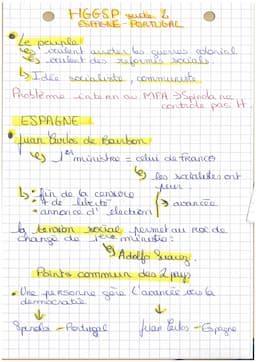 HGGSP suite 2
ESPAGNE - PORTUGAL
• Le peuple
↳ veulent arrêter les guerres colonial
↳ veulent des réformes sociales.
↳ Idée socialiste, communiste
Problème interne au MFA → Spinola ne
contrôle pas tt.
ESPAGNE
• Juan Carlos de Bourbon
↳ 1er ministre = celui de Franco
↳ les
ont
peur
↳ • fin de la censure
• + de liberté
• annonce d'élection
→ avancée
la tension social permet au roi de
changé de 1er ministre:
↳ Adolfo Suarez.
Points commun des 2 pays
• Une personne gère l'avancée vers la
démocratie
↓ ↓
Spinola - Portugal Juan Carlos - Espagne